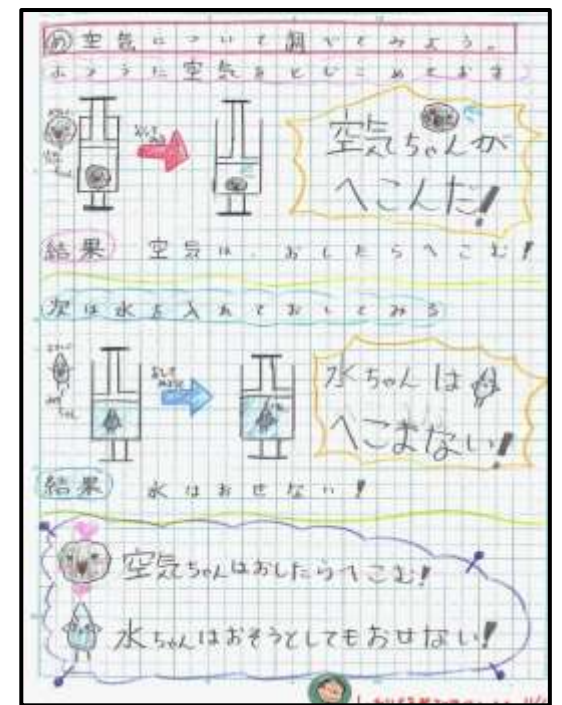 め 空気について調べてみよう。
ように空気をとじこめておす
おして
空気ちゃんが
へこんだ!
結果 空気は、おしたらへこむ!
次は水を入れておしてみる
水ちゃんは
へこまない!
結果 水はおせない!
空気ちゃんはおしたらへこむ!
水ちゃんはおそうとしてもおせない!